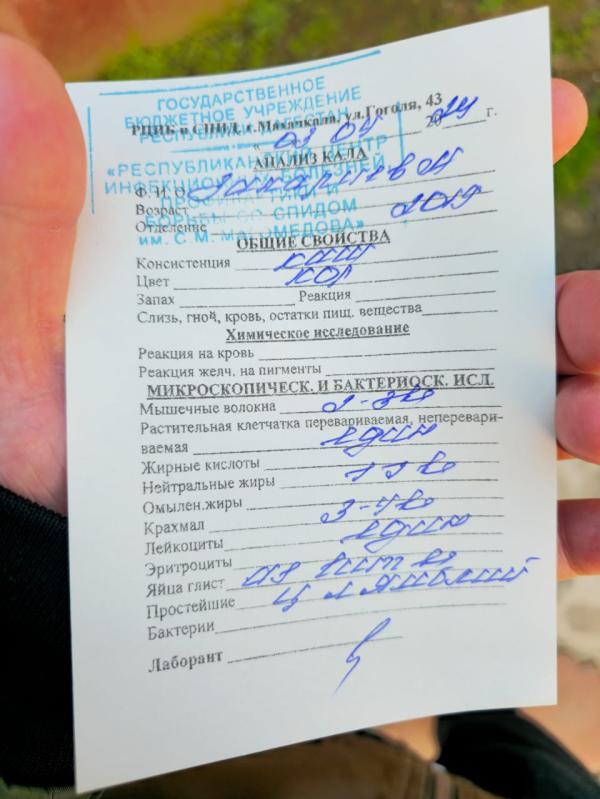 ГОСУДАРСТВЕННОЕ
БЮДЖЕТНОЕ УЧРЕЖДЕНИЕ
РЕСПУБЛИКИ ДАГЕСТАН
«РЕСПУБЛИКАНСКИЙ ЦЕНТР
ИНФЕКЦИОННЫХ БОЛЕЗНЕЙ,
ПРОФИЛАКТИКИ И
БОРЬБЫ СО СПИДОМ
им. С. М. МАГОМЕДОВА»
РЦИБ и СПИД, г.Махачкала, ул.Гоголя, 43
« 03 04 2024 г.
АНАЛИЗ КАЛА
Ф. И. О.
Возраст 2019
Отделение
ОБЩИЕ СВОЙСТВА
Консистенция каш
Цвет кор
Запах Реакция
Слизь, гной, кровь, остатки пищ. вещества
Химическое исследование
Реакция на кровь
Реакция желч. на пигменты
МИКРОСКОПИЧЕСК. И БАКТЕРИОСК. ИСЛ.
Мышечные волокна
Растительная клетчатка перевариваемая, неперевари-
ваемая един
Жирные кислоты
Нейтральные жиры
Омылен.жиры
Крахмал 3-4
Лейкоциты един
Эритроциты
Яйца глист
Простейшие ц лямблий
Бактерии
Лаборант